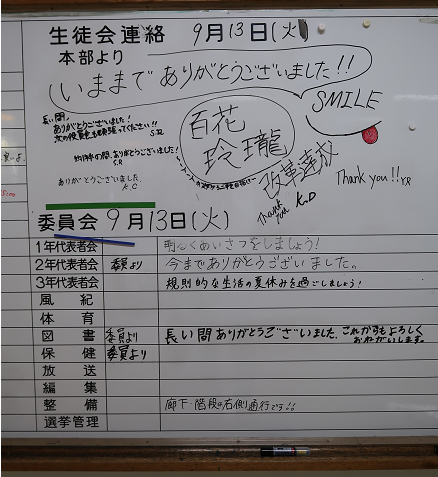 生徒会連絡 9月13日(火)
本部より
いままで ありがとうございました!!
長い間、
ありがとうございました!
次の役員会も頑張ってください!! S.R
約1年の間、ありがとうございました!
S.R
ありがとうございました。
K.C
百花
玲瓏
改革達成
SMILE
Thank you!! Y.R
Thank
you K.D
委員会 9月13日(火)
1年代表者会 明るくあいさつをしましょう!
2年代表者会 委員より 今までありがとうございました。
3年代表者会 規則的な生活の夏休みを過ごしましょう!
風紀
体育
図書 委員より 長い間ありがとうございました、これからもよろしく
おねがいします。
保健 委員より
放送
編集
整備 廊下・階段は右側通行です!!
選挙管理